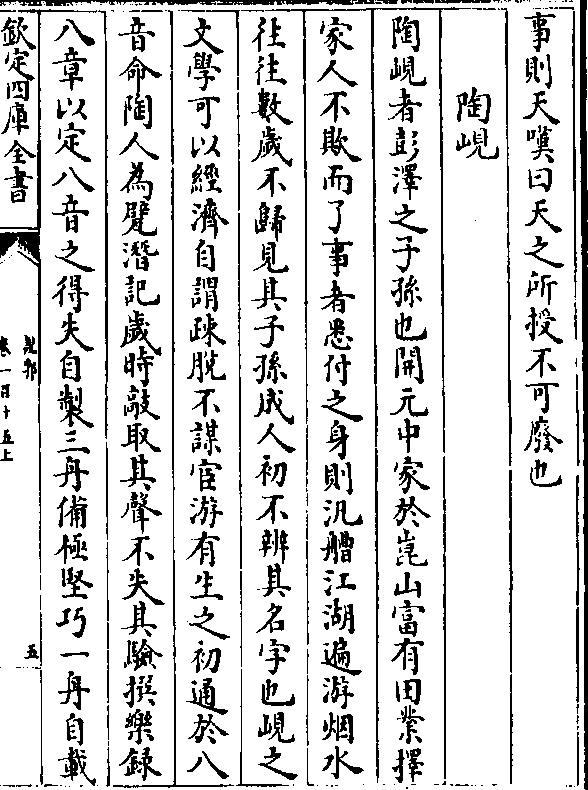 事則天嘆曰天之所授不可廢也
陶峴
陶峴者彭澤之子孫也開元中家於崑山富有田業擇
家人不欺而了事者悉付之身則汎艚江湖遍游烟水
往往數歲不歸見其子孫成人初不辨其名字也峴之
文學可以經濟自謂疎脫不謀官游有生之初通於八
音命陶人為甓潛記歲時敲取其聲不失其驗撰樂録
八章以定八音之得失自製三舟備極堅巧一舟自載
欽定四庫全書
說郛
卷一百十五上
五